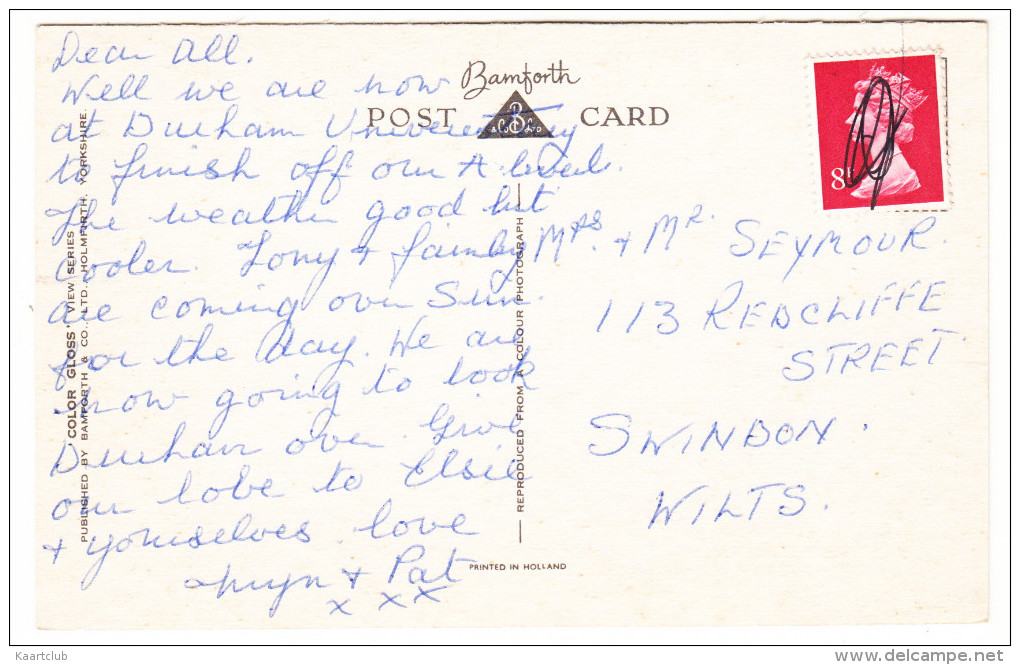 Dear All.
Well we are now
at Durham University
to finish off our A. level.
The weather good but
cooler. Tony + family
are coming over Sun.
for the day. We are
now going to look
Durham over. Give
our love to Elsie
+ yourselves. love
+ Pat
x x x
Bamforth
POST CARD
B
& Co LTD
8
Mrs. + Mr. SEYMOUR.
113 REDCLIFFE
STREET
SWINDON.
WILTS.
'COLOR GLOSS' VIEW SERIES
PUBLISHED BY BAMFORTH & CO., LTD., HOLMFIRTH, YORKSHIRE.
REPRODUCED FROM A COLOUR PHOTOGRAPH
PRINTED IN HOLLAND
Kaartclub
www.delcampe.net